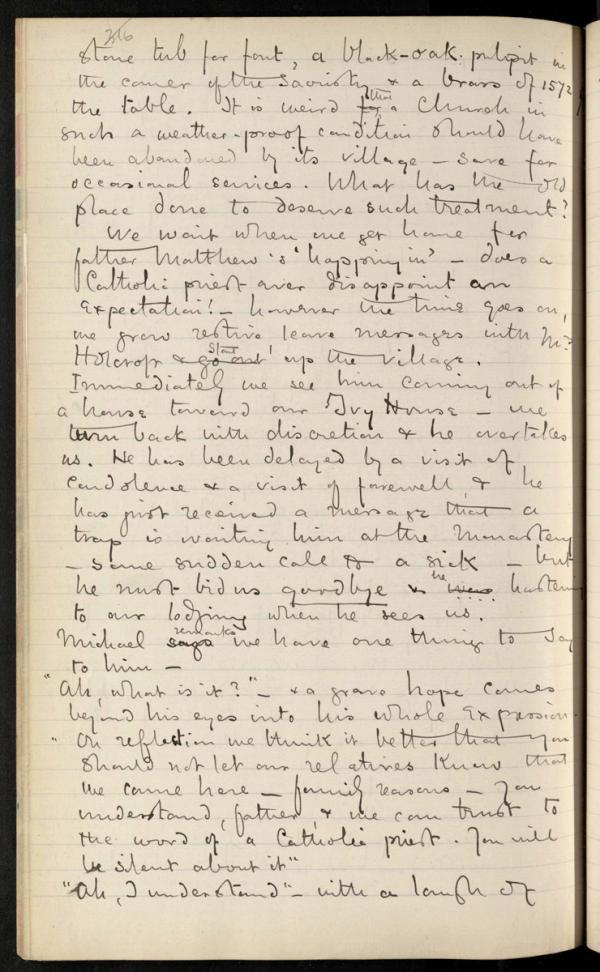 216
stone tub for font, a black-oak pulpit in
the corner of the Sacristy & a brass of 1572
the table. It is weird that a Church in
such a weather-proof condition should have
been abandoned by its village – save for
occasional services. What has the old
place done to deserve such treatment?
We wait when we get home for
father Matthew's 'happing in' – does a
Catholic priest ever disappoint an
Expectation! – however the time goes on,
we grow restive, leave messages with Mrs
Holcrop & go out start up the village.
Immediately we see him coming out of
a house toward our Ivy House – we
turn back with discretion & he overtakes
us. He has been delayed by a visit of
condolence & a visit of farewell, & he
has just received a message that a
trap is waiting him at the Monastery
– some sudden call to a sick – but
he must bid us goodbye & he was hastening
to our lodging when he sees us.
Michael says remarks we have one thing to say
to him –
"Ah, what is it?" – & a grave hope comes
beyond his eyes into his whole Expression.
"On reflection we think it better that you
should not let our relatives know that
we came here – family reasons – you
understand, father, & we can trust to
the word of a Catholic priest. You will
be silent about it"
"Ah, I understand" – with a laugh of